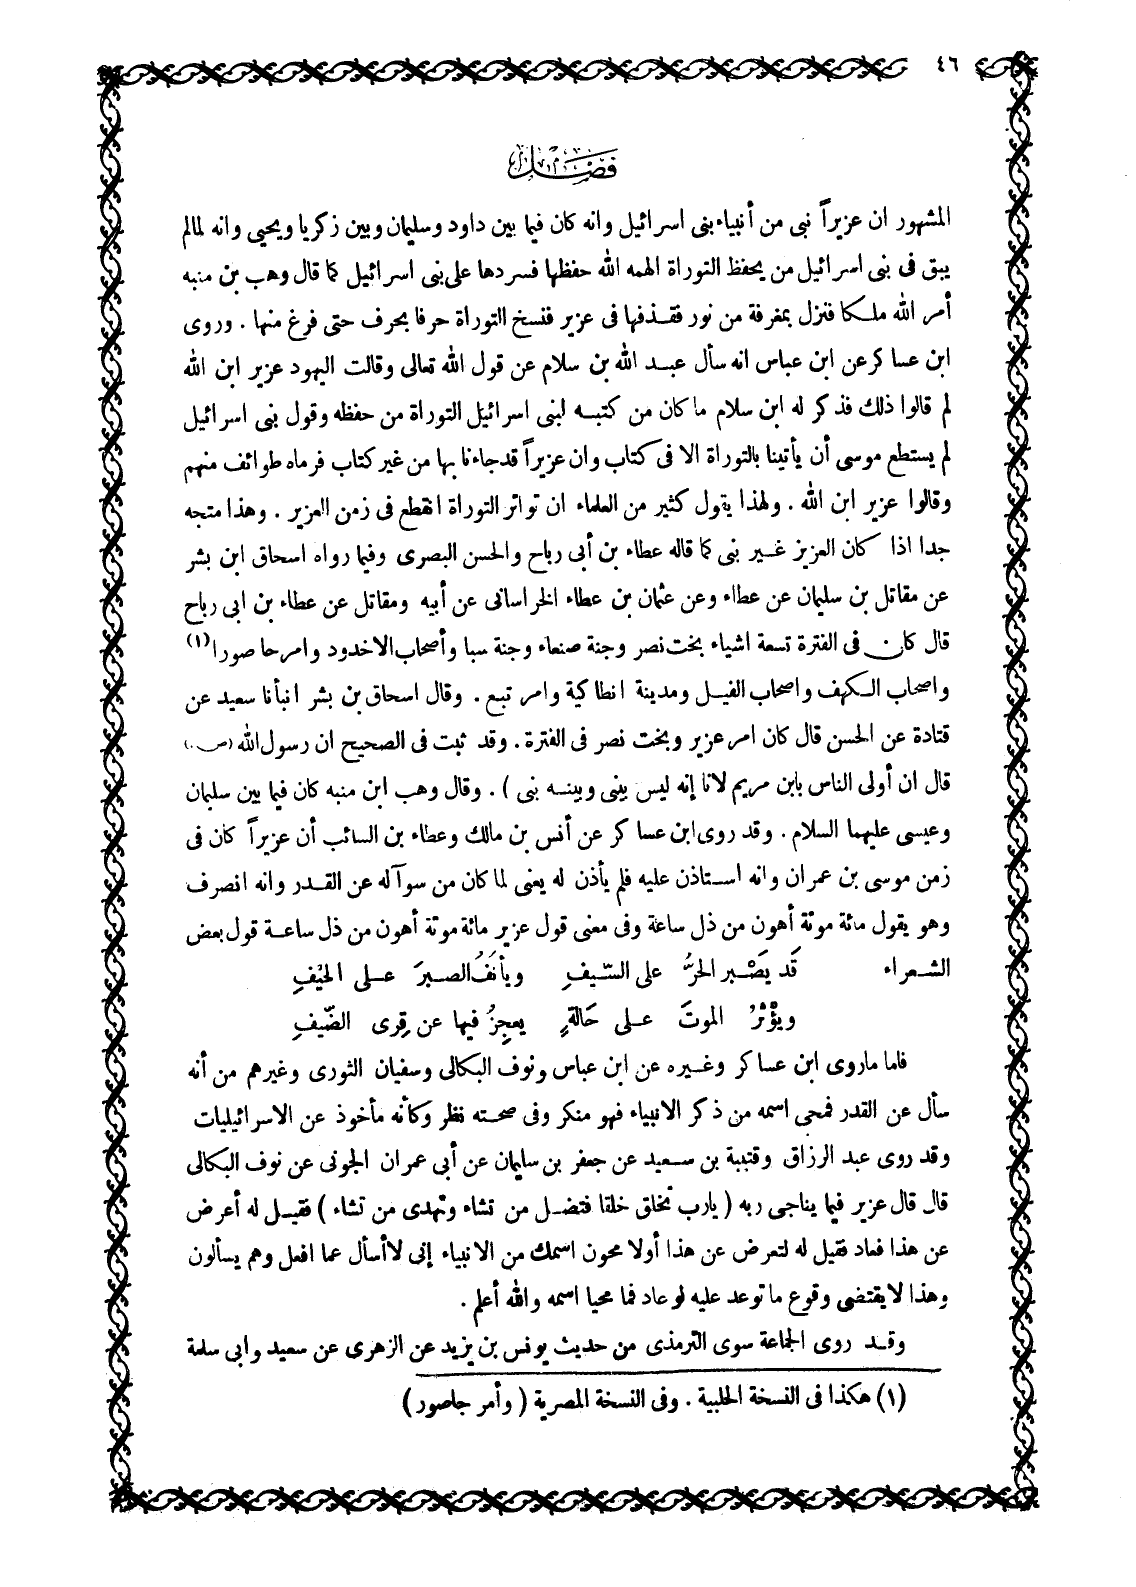 ٤٦
فصل
المشهور ان عزيراً نبى من أنبياء بنى اسرائيل وانه كان فيما بين داود وسليمان وبين زكريا ويحيى وانه لمالم
يبق فى بنى اسرائيل من يحفظ التوراة الهمه الله حفظها فسردها على بنى اسرائيل كما قال وهب بن منبه
أمر الله ملكا فنزل بمغرفة من نور فقذفها فى عزير فنسخ التوراة حرفا بحرف حتى فرغ منها . وروى
ابن عساكر عن ابن عباس انه سأل عبد الله بن سلام عن قول الله تعالى وقالت اليهود عزير ابن الله
لم قالوا ذلك فذكر له ابن سلام ما كان من كتبه لبنى اسرائيل التوراة من حفظه وقول بنى اسرائيل
لم يستطع موسى أن يأتينا بالتوراة الا فى كتاب وان عزيراً قد جاءنا بها من غير كتاب فرماه طوائف منهم
وقالوا عزير ابن الله . ولهذا يقول كثير من العلماء ان تواتر التوراة انقطع فى زمن العزير . وهذا متجه
جدا اذا كان العزيز غير نبى كما قاله عطاء بن أبى رباح والحسن البصرى وفيما رواه اسحاق ابن بشر
عن مقاتل بن سليمان عن عطاء وعن عثمان بن عطاء الخراسانى عن أبيه ومقاتل عن عطاء بن ابى رباح
قال كان فى الفترة تسعة اشياء بخت نصر وجنة صنعاء وجنة سبا وأصحاب الاخدود وامر حاصورا (١)
واصحاب الكهف واصحاب الفيل ومدينة انطاكية وامر تبع . وقال اسحاق بن بشر انبأنا سعيد عن
قتادة عن الحسن قال كان امر عزير وبخت نصر فى الفترة . وقد ثبت فى الصحيح ان رسول الله (ص.)
قال ان أولى الناس بابن مريم لانا إنه ليس بينى وبينه نبى ) . وقال وهب ابن منبه كان فيما بين سلمان
وعيسى عليهما السلام . وقد روى ابن عساكر عن أنس بن مالك وعطاء بن السائب أن عزيراً كان فى
زمن موسى بن عمران وانه استاذن عليه فلم يأذن له يعنى لما كان من سوآله عن القدر وانه انصرف
وهو يقول مائة موتة أهون من ذل ساعة وفى معنى قول عزير مائة موتة أهون من ذل ساعة قول بعض
الشعراء قَد يَصْبر الحرُّ على السّيفِ ويأنَفُ الصبرَ على الحَيْفِ
ويؤْثرُ الموتَ على حَالةٍ يعجِزُ فيها عن قِرى الضّيفِ
فاما ماروى ابن عساكر وغيره عن ابن عباس ونوف البكالى وسفيان الثورى وغيرهم من أنه
سأل عن القدر فمحى اسمه من ذكر الانبياء فهو منكر وفى صحته نظر وكأنه مأخوذ عن الاسرائيليات
وقد روى عبد الرزاق وقتيبة بن سعيد عن جعفر بن سليمان عن أبى عمران الجونى عن نوف البكالى
قال قال عزير فيما يناجى ربه ( يارب تخلق خلقا فتضل من تشاء وتهدى من تشاء ) فقيل له أعرض
عن هذا فعاد فقيل له لتعرض عن هذا أولا محون اسمك من الانبياء إنى لاأسأل عما افعل وهم يسألون
وهذا لا يقتضى وقوع ماتوعد عليه لو عاد فما محيا اسمه والله أعلم .
وقد روى الجماعة سوى الترمذى من حديث يونس بن يزيد عن الزهرى عن سعيد وابى سلمة
(١) هكذا فى النسخة الحلبية . وفى النسخة المصرية ( وأمر جاصور )